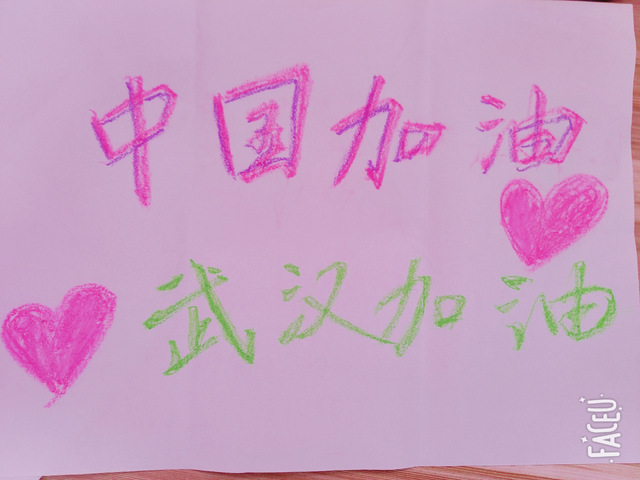 中国加油
武汉加油
FACEU